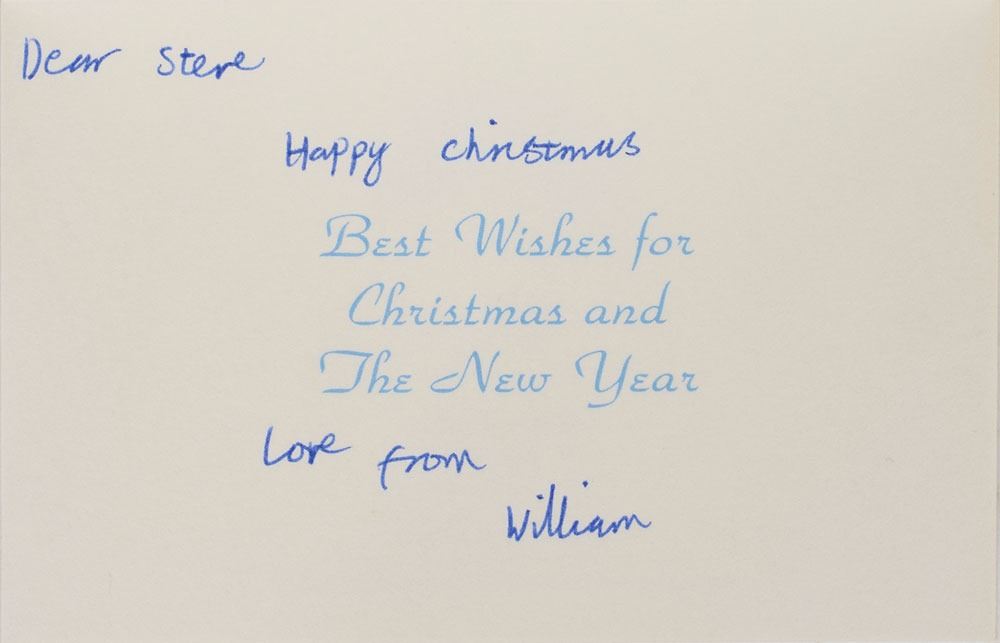 Dear Steve
Happy christmas
Best Wishes for
Christmas and
The New Year
Love from
William